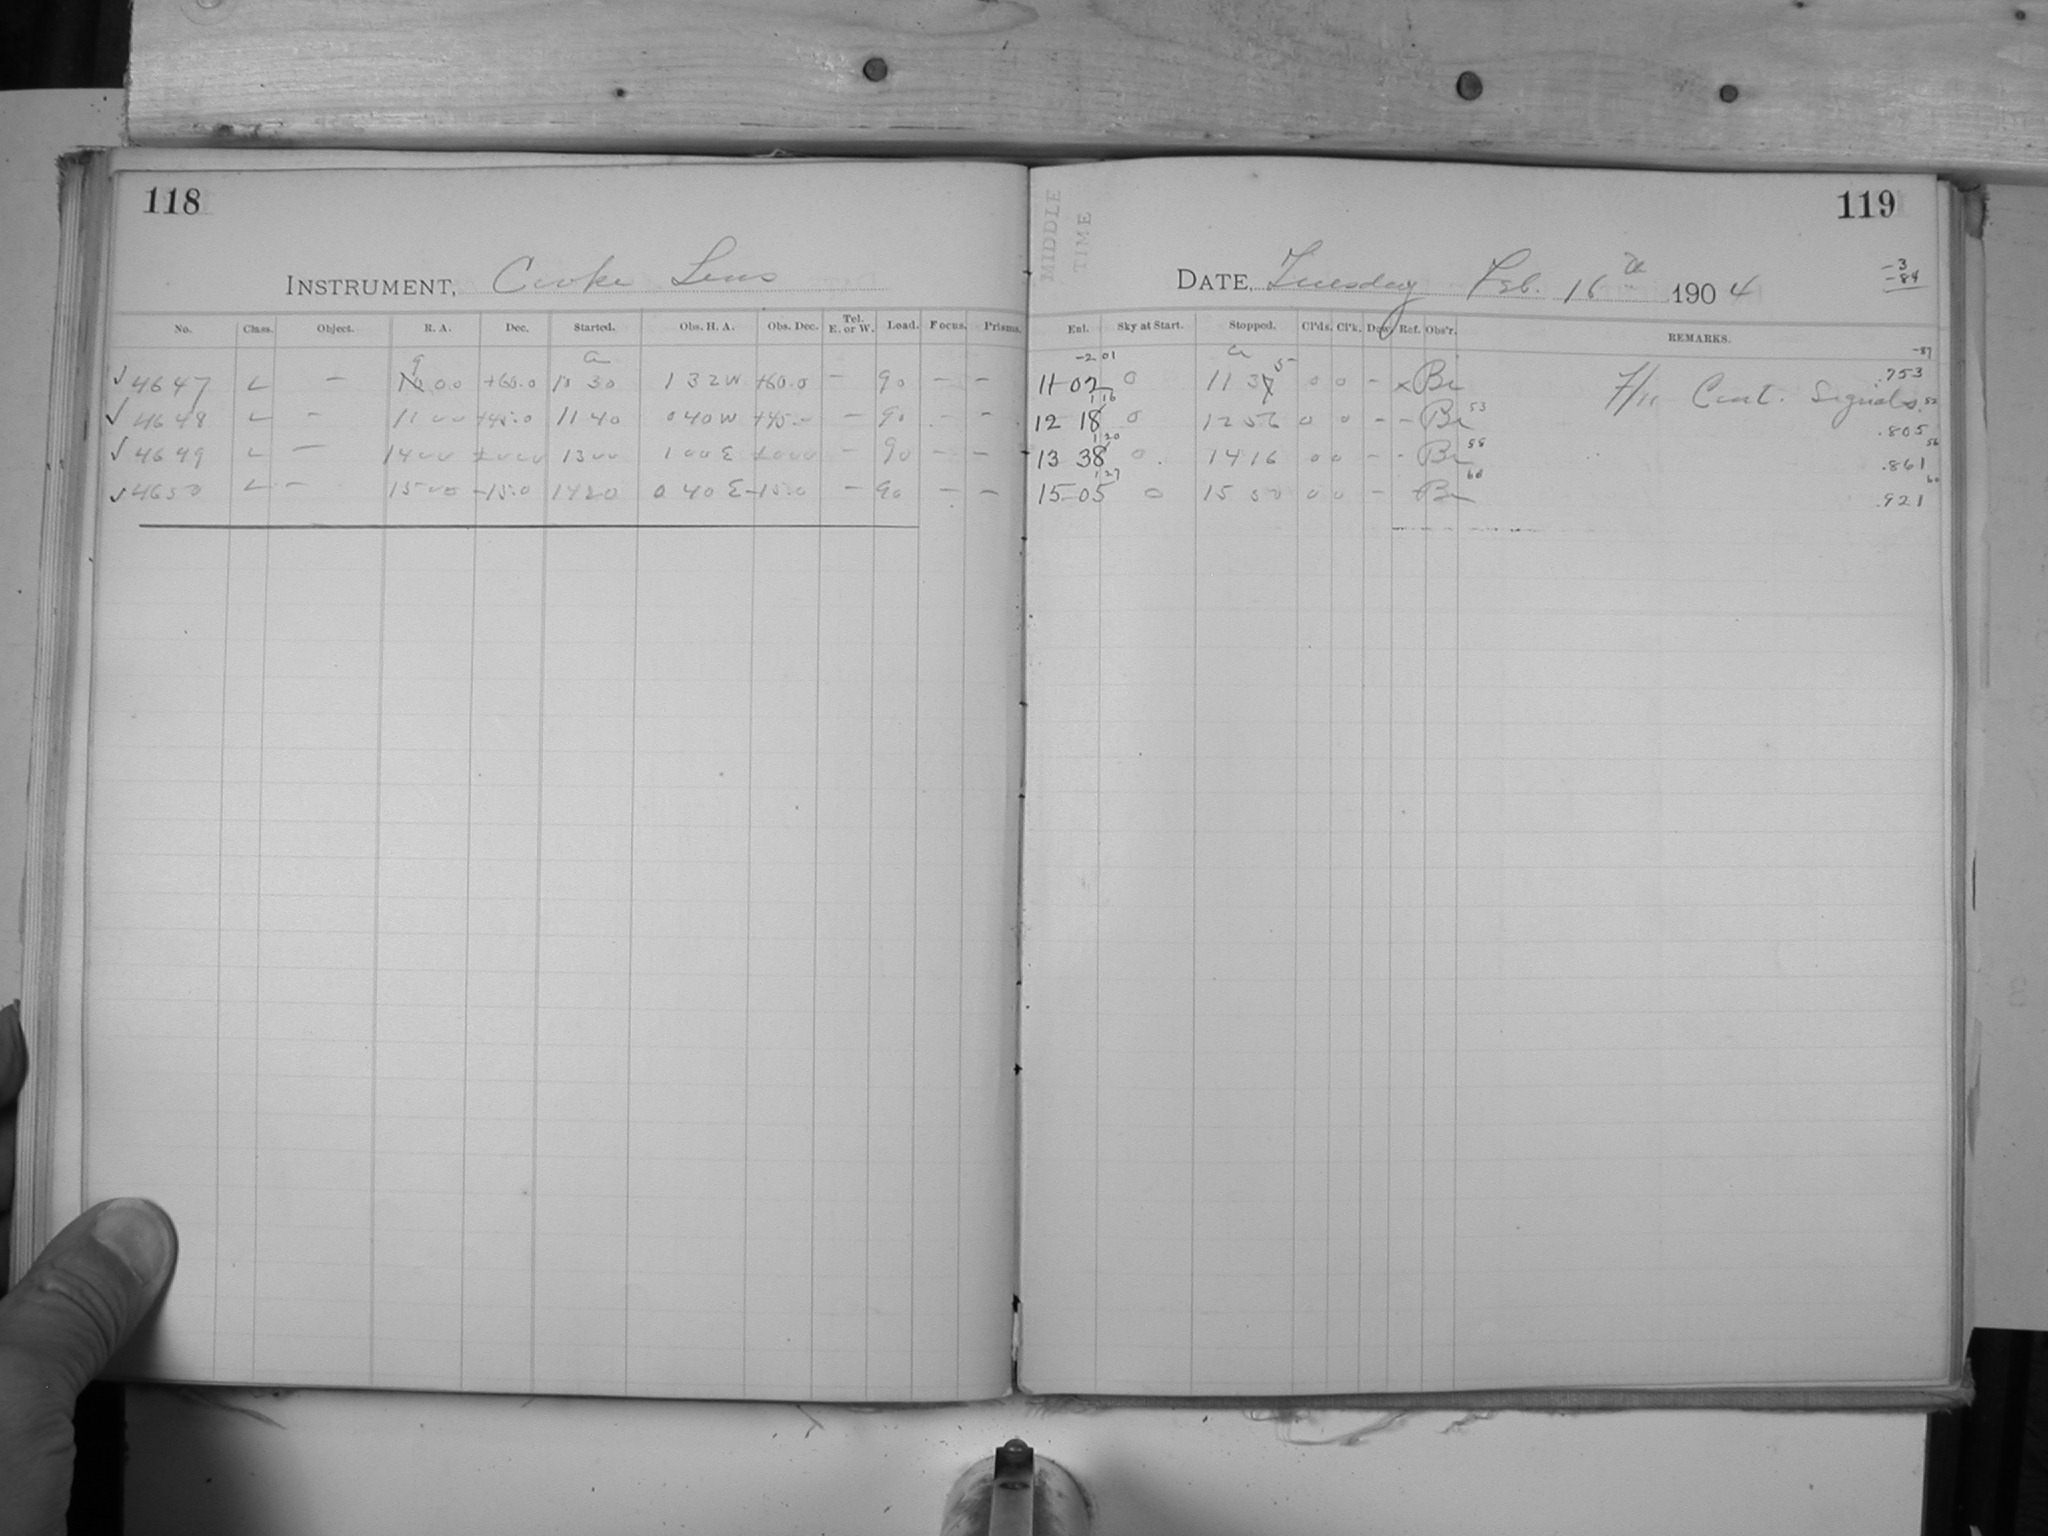 118
INSTRUMENT, Cooke Lens
No. Class. Object. R. A. Dec. Started. Obs. H. A. Obs. Dec. Tel. E. or W. Load. Focus. Prisms.
9 a
✓ 4647 L — 10 00 +60.0 10 30 1 32 W +60.0 — 90 — —
✓ 4648 L — 11 00 +45.0 11 40 0 40 W +45.0 — 90 — —
✓ 4649 L — 14 00 ±0 00 13 00 1 00 E ±0 00 — 90 — —
✓ 4650 L — 15 00 -15.0 14 20 0 40 E -15.0 — 90 — —
MIDDLE TIME
119
DATE, Tuesday Feb. 16th 1904
-3
-84
Enl. Sky at Start. Stopped. Cl'ds. Cl'k. Dew. Ref. Obs'r. REMARKS.
-2 01 a 5 -87
11-02 0 11 37 0 0 - x Bi F/11 Cent. Signals. .753
1 16 53 52
12 18 0 12 56 0 0 - - Bi .805
1 20 55 56
13 38 0 14 16 0 0 - - Bi .861
1 27 60 60
15-05 0 15 50 0 0 - Bi .921